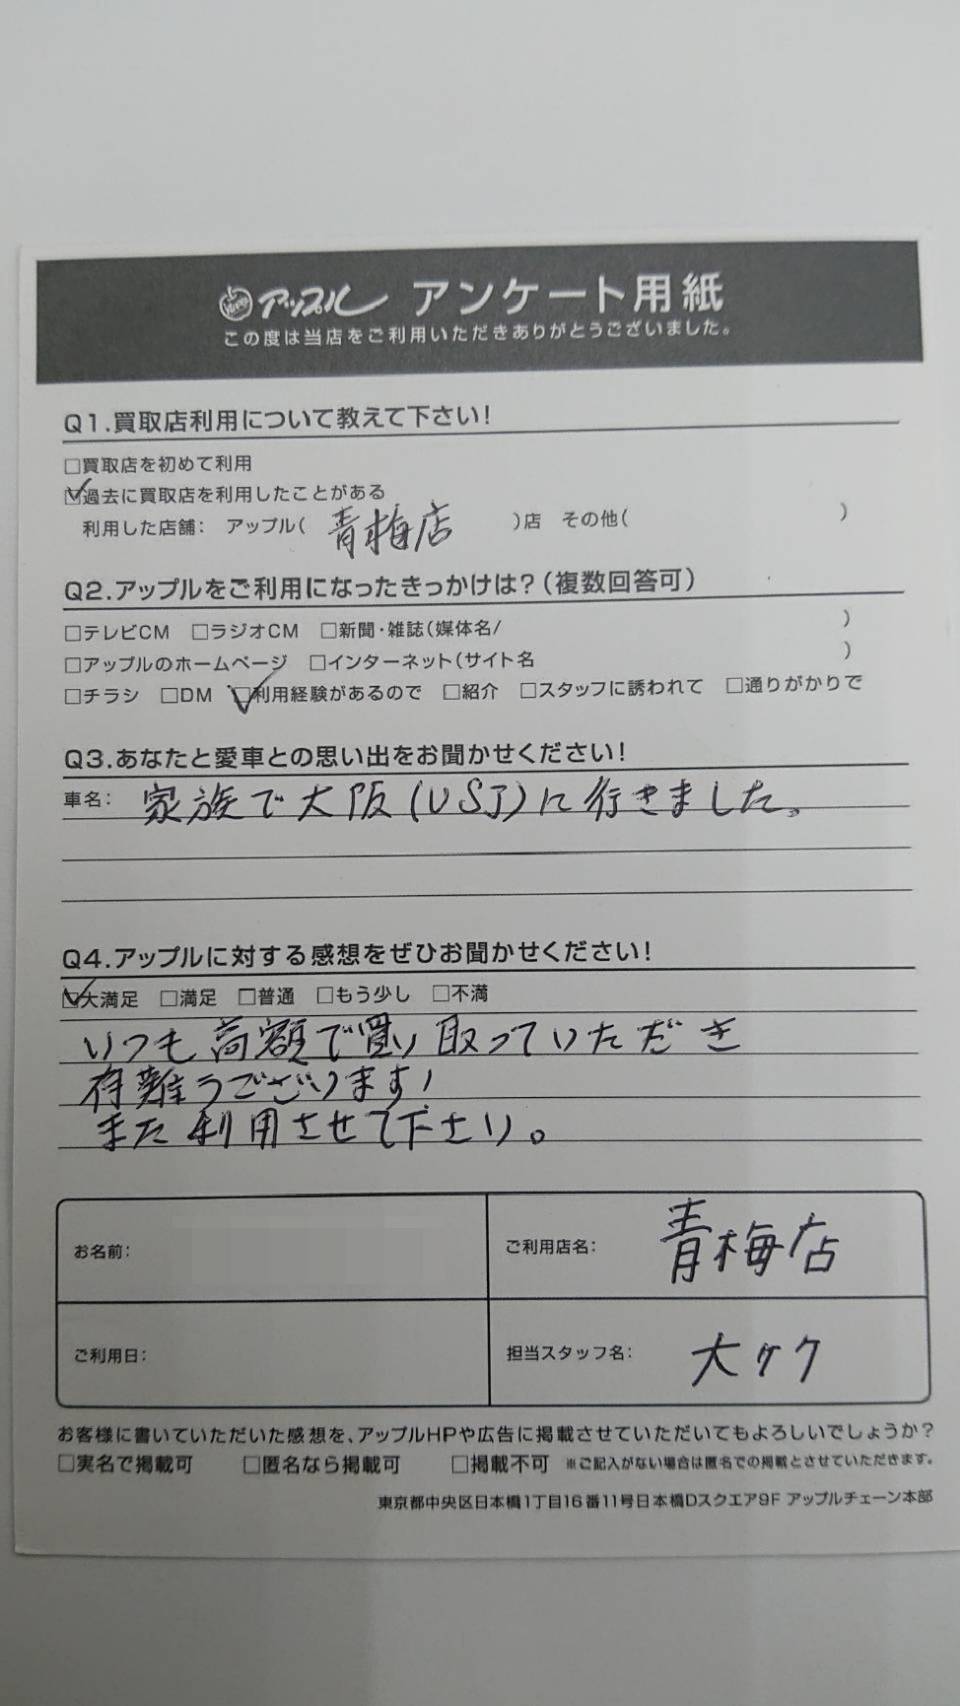 アップル アンケート用紙
この度は当店をご利用いただきありがとうございました。
Q1.買取店利用について教えて下さい!
□買取店を初めて利用
☑過去に買取店を利用したことがある
利用した店舗: アップル( 青梅店 )店 その他( )
Q2.アップルをご利用になったきっかけは?(複数回答可)
□テレビCM □ラジオCM □新聞・雑誌(媒体名/ )
□アップルのホームページ □インターネット(サイト名 )
□チラシ □DM ☑利用経験があるので □紹介 □スタッフに誘われて □通りがかりで
Q3.あなたと愛車との思い出をお聞かせください!
車名: 家族で大阪(USJ)に行きました。
Q4.アップルに対する感想をぜひお聞かせください!
☑大満足 □満足 □普通 □もう少し □不満
いつも高額で買い取っていただき
有難うございます!
また利用させて下さい。
お名前:
ご利用店名: 青梅店
ご利用日:
担当スタッフ名: 大ケク
お客様に書いていただいた感想を、アップルHPや広告に掲載させていただいてもよろしいでしょうか?
□実名で掲載可 □匿名なら掲載可 □掲載不可 ※ご記入がない場合は匿名での掲載とさせていただきます。
東京都中央区日本橋1丁目16番11号日本橋Dスクエア9F アップルチェーン本部